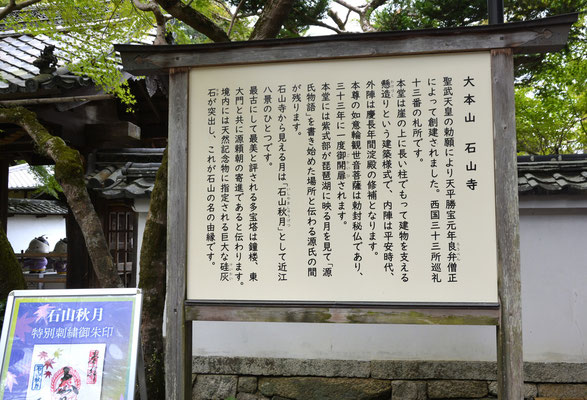 大本山　石山寺
聖武天皇の勅願により天平勝宝元年良弁僧正
によって創建されました。西国三十三所巡礼
十三番の札所です。
本堂は崖の上に長い柱でもって建物を支える
懸造りという建築様式で、内陣は平安時代、
外陣は慶長年間淀殿の修補となります。
本尊の如意輪観世音菩薩は勅封秘仏であり、
三十三年に一度御開扉されます。
本堂には紫式部が琵琶湖に映る月を見て「源
氏物語」を書き始めた場所と伝わる源氏の間
が残ります。
石山寺から見える月は「石山秋月」として近江
八景のひとつです。
最古にして最美と評される多宝塔は鐘楼、東
大門と共に源頼朝の寄進であると伝わります。
境内には天然記念物に指定される巨大な硅灰
石が突出し、これが石山の名の由縁です。
石山秋月
特別刺繍御朱印